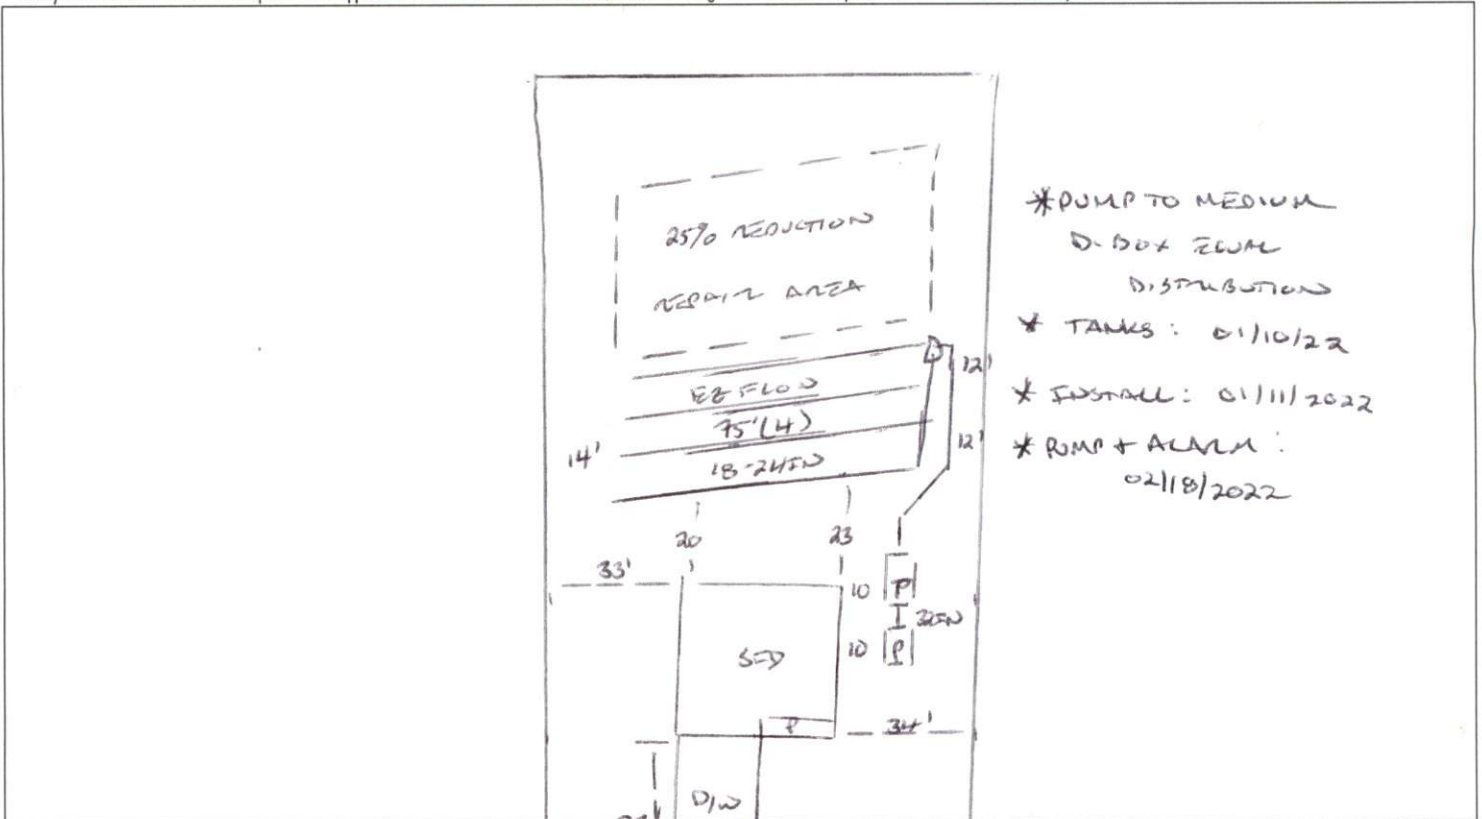 25% REDUCTION
REPAIR AREA
EZ FLOW
75' (4)
18-24IN
14'
12'
12'
20
23
33'
10
P
I
10
SFD
P
34'
D/W
*PUMP TO MEDIUM
D-BOX EQUAL
DISTRIBUTION
* TANKS: 01/10/22
* INSTALL: 01/11/2022
* PUMP + ALARM:
02/18/2022